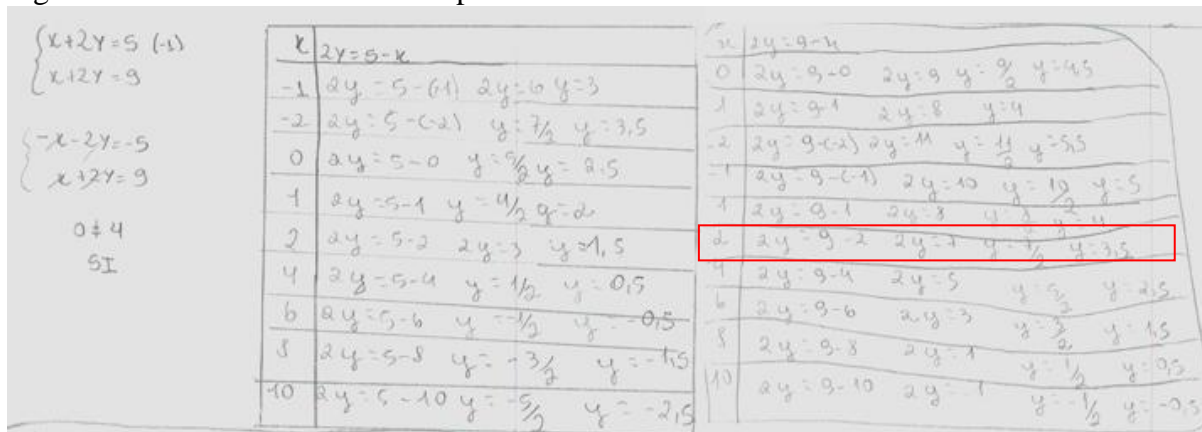 x+2y=5 (-1)
x+2y=9
-x-2y=-5
x+2y=9
0≠4
SI
x 2y=5-x
-1 2y=5-(-1) 2y=6 y=3
-2 2y=5-(-2) y=7/2 y=3,5
0 2y=5-0 y=5/2 y=2,5
1 2y=5-1 y=4/2 y=2
2 2y=5-2 2y=3 y=1,5
4 2y=5-4 y=1/2 y=0,5
6 2y=5-6 y=-1/2 y=-0,5
8 2y=5-8 y=-3/2 y=-1,5
10 2y=5-10 y=-5/2 y=-2,5
x 2y=9-x
0 2y=9-0 2y=9 y=9/2 y=4,5
1 2y=9-1 2y=8 y=4
-2 2y=9-(-2) 2y=11 y=11/2 y=5,5
-1 2y=9-(-1) 2y=10 y=10/2 y=5
1 2y=9-1 2y=8 y=8/2 y=4
2 2y=9-2 2y=7 y=7/2 y=3,5
4 2y=9-4 2y=5 y=5/2 y=2,5
6 2y=9-6 2y=3 y=3/2 y=1,5
8 2y=9-8 2y=1 y=1/2 y=0,5
10 2y=9-10 2y=-1 y=-1/2 y=-0,5